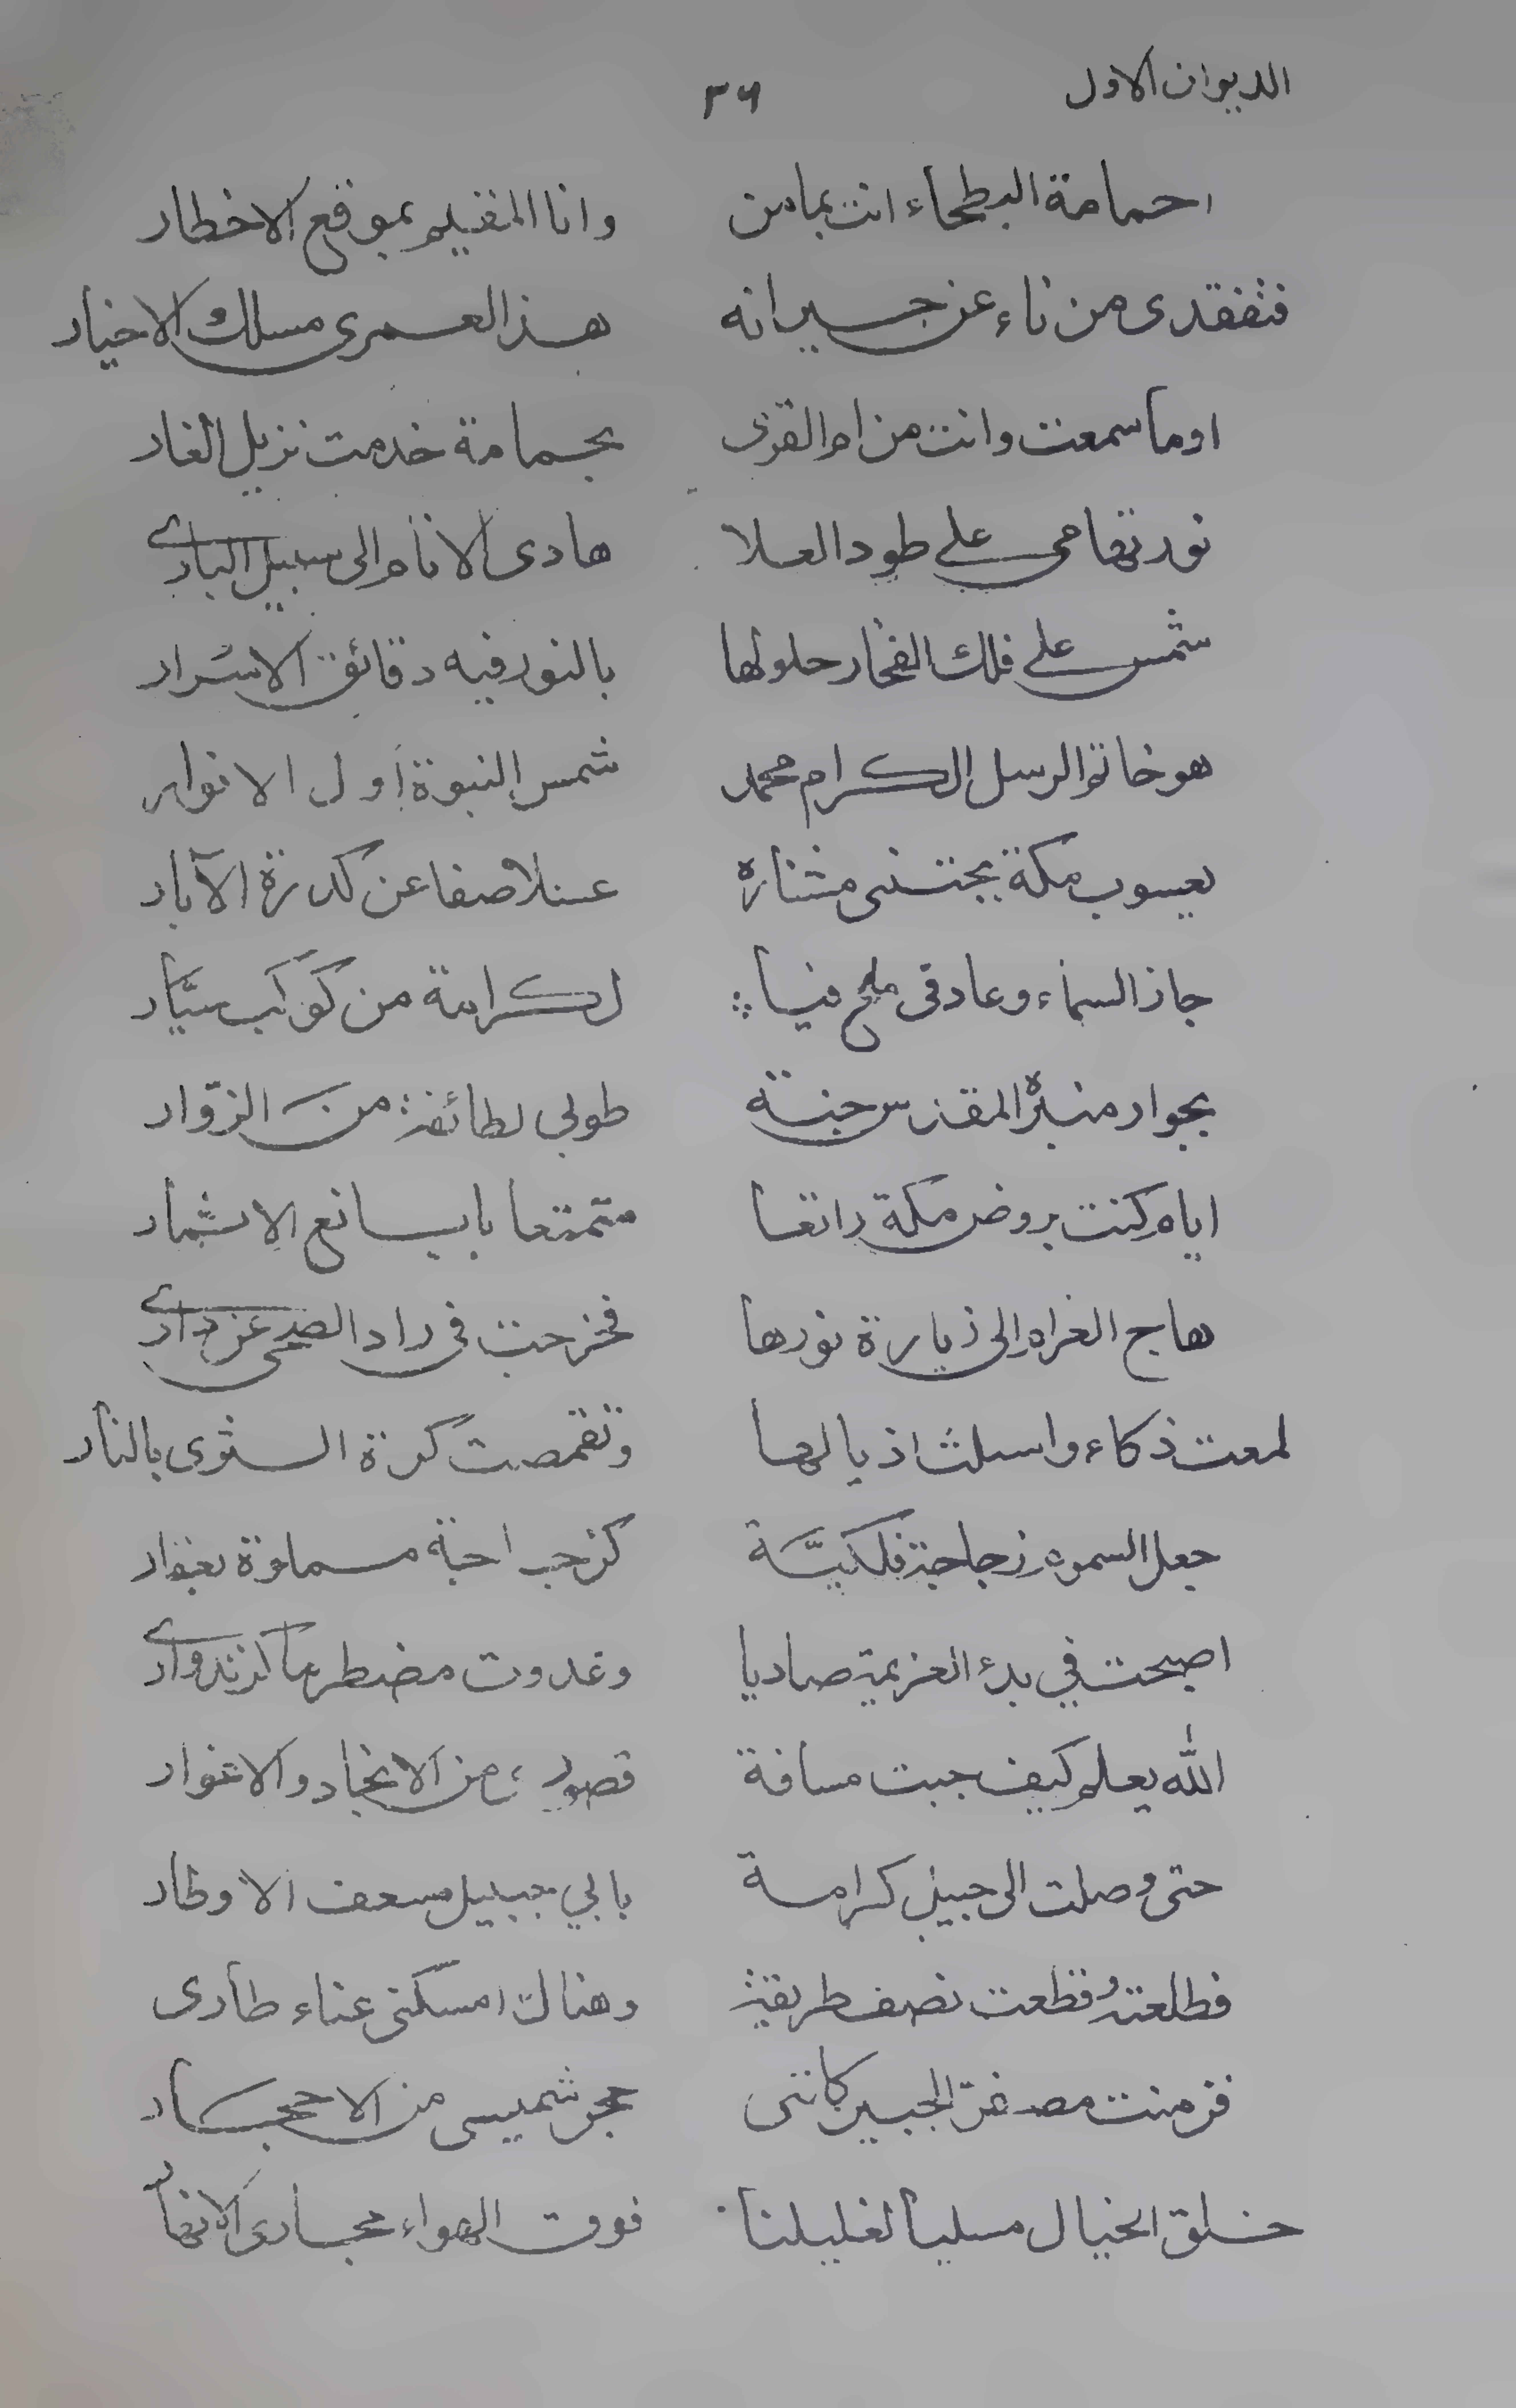 الديوان الاول ٣٦
احمامة البطحاء انت بمامن وانا المقيم بموقع الاخطار
فتفقدى من ناء عن جيرانه هذا لعمرى مسلك الاخيار
اوما سمعت وانت من ام القرى بحمامة خدمت نزيل الغار
نور تهامى على طود العلا هادى الانام الى سبيل البارى
شمس على فلك الفخار حلولها بالنور فيه دقائق الاسرار
هو خاتم الرسل الكرام محمد شمس النبوة أول الانوار
يعسوب مكة يجتنى مشتاره عسلا صفا عن كدرة الآبار
جاز السماء وعاد فى ملح لكرامة من كوكب سيّار
بجوار منبره المقدس جنة طوبى لطائفة من الزوّار
ايام كنت بروض مكة راتعا متمتعا بايانع الاثمار
هاج الغرام الى زيارة نورها فخرجت فى راد الضحى عن دارى
لمعت ذكاء واسبلت اذيالها وتقمصت كرة الثرى بالنار
جعل السموم زجاجة فلكيّة سماوة بغبار
اصبحت في بدء العزيمة صاديا وغدوت مضطرما كزند وارى
الله يعلم كيف جبت مسافة قصوى من الانجاد والاغوار
حتى وصلت الى جبين كرامة بابي جبيل مسعف الاوطار
فطلعته وقطعت نصف طريقة وهناك امسكنى عناء طارى
فزمنت الجبين كاننى حجر شميسى من الاحجار
خلق الخيال مسليا لغليلنا فوق الهواء مجارى الانهار